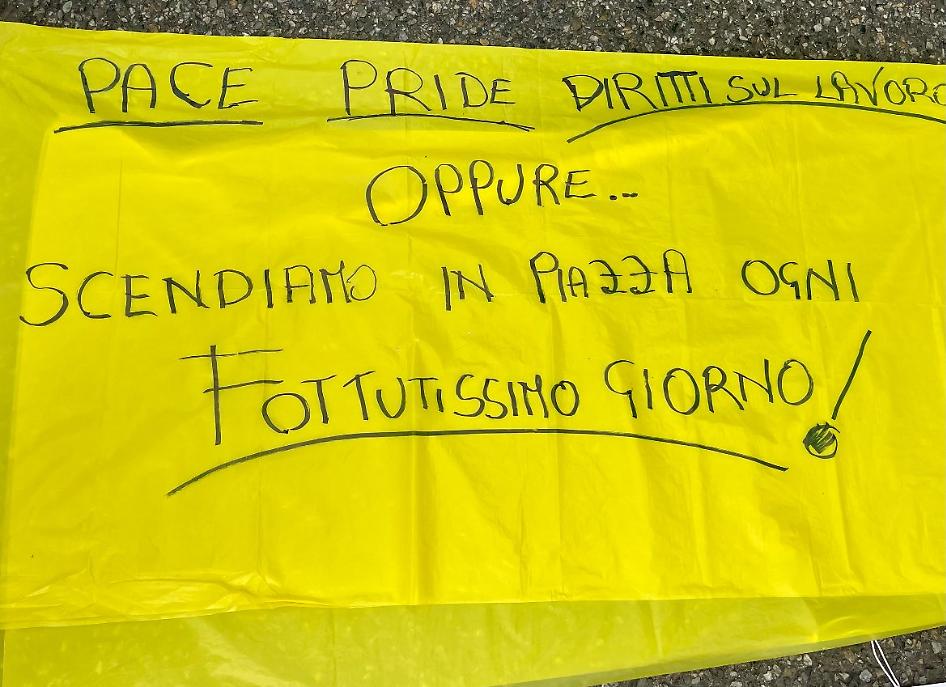 PACE PRIDE DIRITTI SUL LAVORO
OPPURE...
SCENDIAMO IN PIAZZA OGNI
FOTTUTISSIMO GIORNO!